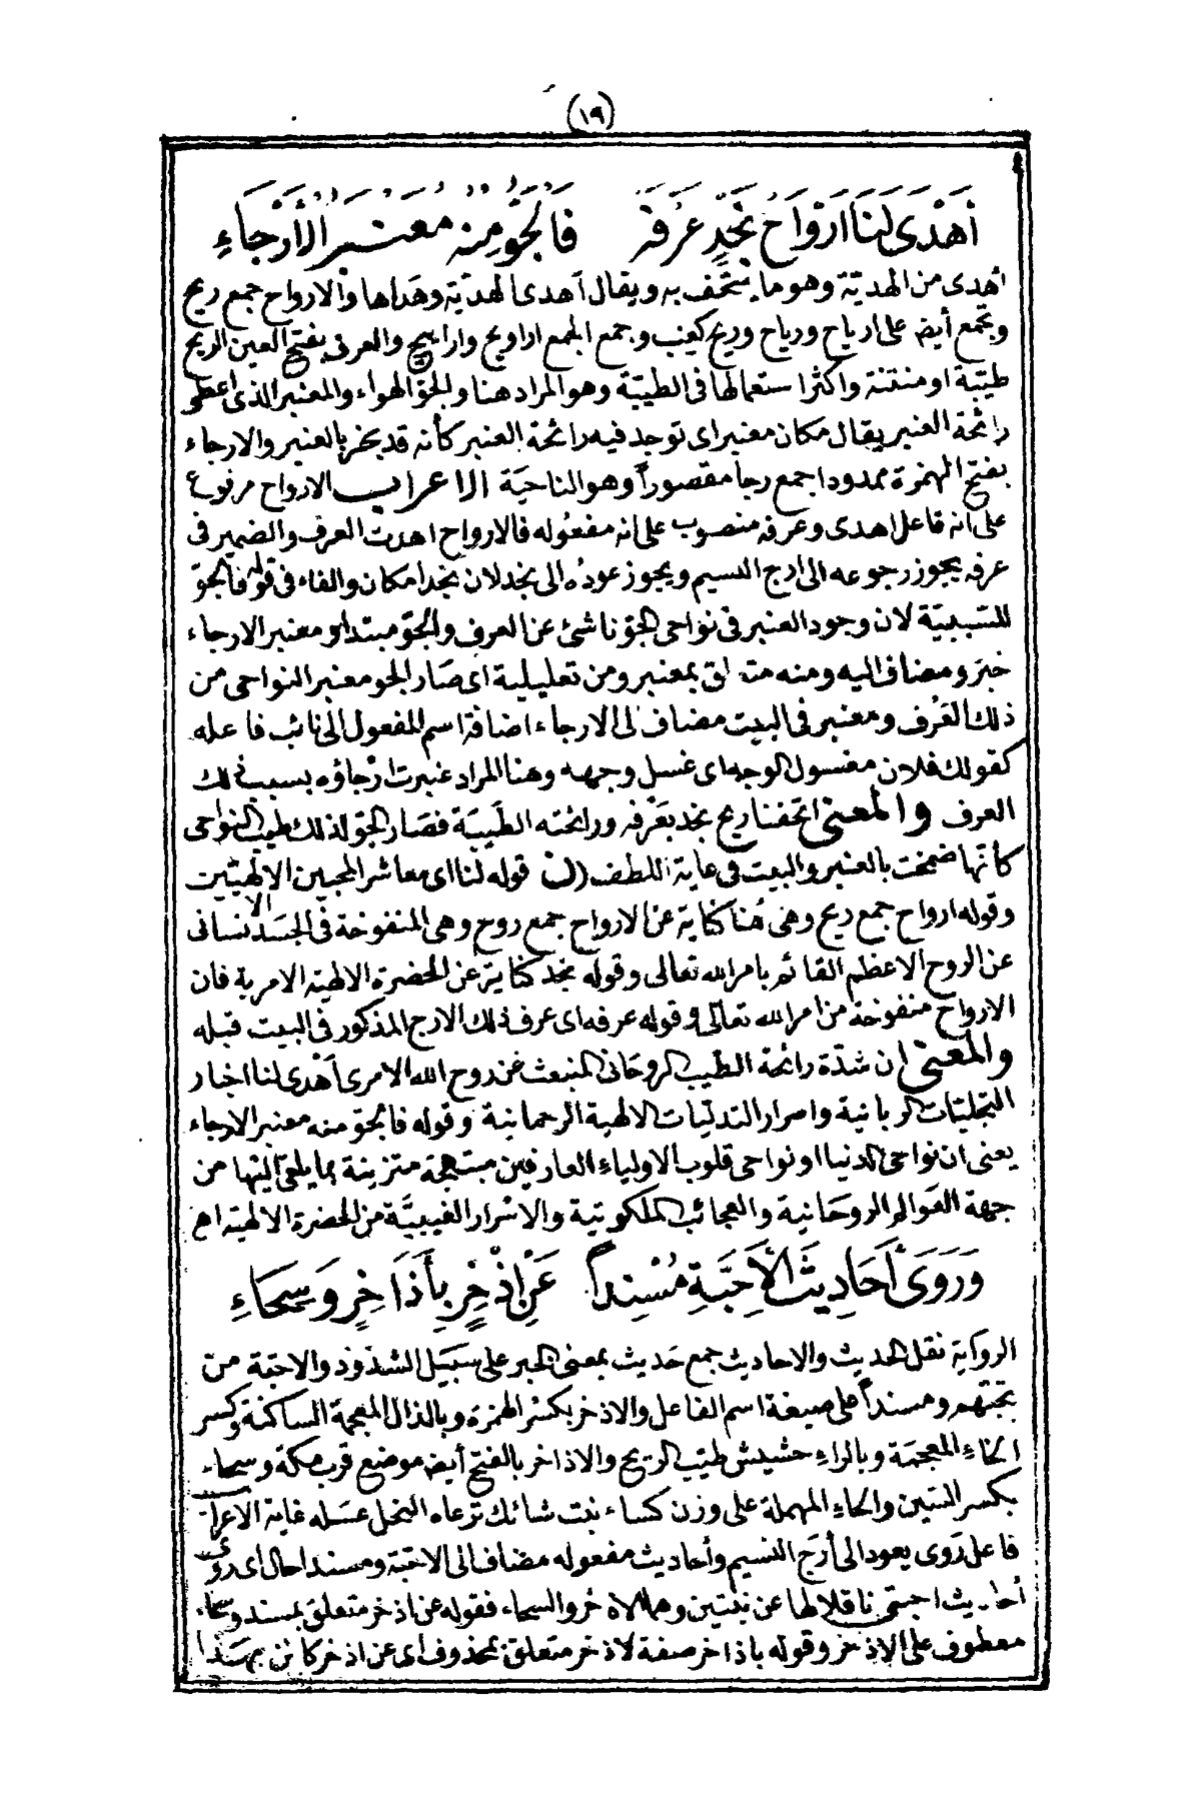 (١٩)
أَهْدَى لَنَا أَرْوَاحُ نَجْدٍ عَرْفَهُ فَالْجَوُّ مِنْهُ مُعَنْبَرُ الْأَرْجَاءِ
أهدى من الهديّة وهو ما يتحف به ويقال أهدى الهديّة وهداها والارواح جمع ريح
وتجمع أيضا على ارياح ورياح وريح كعنب وجمع الجمع اراويح واراييح والعرف بفتح العين الريح
طيّبة او منتنة واكثر استعمالها فى الطيّبة وهو المراد هنا والجوّ الهواء والمعنبر الذى اعطى
رائحة العنبر يقال مكان معنبر اى توجد فيه رائحة العنبر كأنه قد بخر بالعنبر والارجاء
بفتح الهمزة ممدودا جمع رجا مقصوراً وهو الناحية الاعراب الارواح مرفوع
على انه فاعل اهدى وعرفه منصوب على انه مفعوله فالارواح اهدت العرف والضمير فى
عرفه يجوز رجوعه الى ارج النسيم ويجوز عوده الى نجد لان نجدا مكان والفاء فى قوله فالجوّ
للسّببيّة لان وجود العنبر فى نواحى الجوّ ناشئ عن العرف والجوّ مبتدأ ومعنبر الارجاء
خبر ومضاف اليه ومنه متعلق بمعنبر ومن تعليلية اى صار الجو معنبر النواحى من
ذلك العَرْف ومعنبر فى البيت مضاف الى الارجاء اضافة اسم المفعول الى نائب فاعله
كقولك فلان مغسول الوجه اى غسل وجهه وهنا المراد عنبرت ارْجاؤه بسبب ذلك
العرف والمعنى اتحفنا ريح نجد بعَرْفه ورائحته الطَّيبَة فصَار الجوّ لذلك طيب النواحى
كأنها ضمخت بالعنبر والبيت فى غاية اللطف (ن) قوله لنا اى معاشر المحبين الالهيّين
وقوله ارواح جمع ريح وهى هُنا كناية عن الارواح جمع روح وهى المنفوخة فى الجسَد الانسانى
عن الروح الاعظم القائم بامر الله تعالى وقوله نجد كناية عن الحضرة الالهية الامرية فان
الارواح منفوخة من امر الله تعالى وقوله عرفه اى عرف ذلك الارج المذكور فى البيت قبله
والمعنى ان شدّة رائحة الطّيب الروحَانى المنبعث عن روح الله الامرى أهْدى لنا اخبار
التجليّات الربانية واسرار التدليات الالهية الرحمانية وقوله فالجوّ منه معنبر الارجاء
يعنى ان نواحى الدنيا او نواحى قلوب الاولياء العارفين مبتهجة متزينة بما يلقى اليها من
جهة العَوالم الروحَانية والعجائب الملكوتية والاسْرار الغيبيَّة من الحضرة الالهية اه
وَرَوَى أَحَادِيثَ الْأَحِبَّةِ مُسْنِداً عَنْ إِذْخِرٍ بِأَذَاخِرٍ وَسِحَاءِ
الرواية نقل الحديث والاحاديث جمع حَديث بمعنى الخبر على سَبيل الشذوذ والاحبّة من
تحبّهم ومسنداً على صيغة اسم الفاعل والاذخر بكسر الهمزة وبالذال المعجمة الساكنة وكسر
الخاء المعجمَة وبالراء حشيش طيّب الريح والاذاخر بالفتح أيضا موضع قرب مكة وسحاء
بكسر السّين والحاء المهملة على وزن كساء نبت شائك ترعاه النحل عسَله غاية الاعراب
فاعل رَوى يعود الى أرَج النسيم وأحاديث مفعوله مضاف الى الاحبّة ومسندا حال اى روى
أحاديث احبتى ناقلا لها عن نبتين وهما الاذخر والسحاء فقوله عن اذخر متعلق بمسند وسحاء
معطوف على الاذخر وقوله باذاخر صفة لاذخر متعلق بمحذوف اى عن اذخر كائن بهَذا